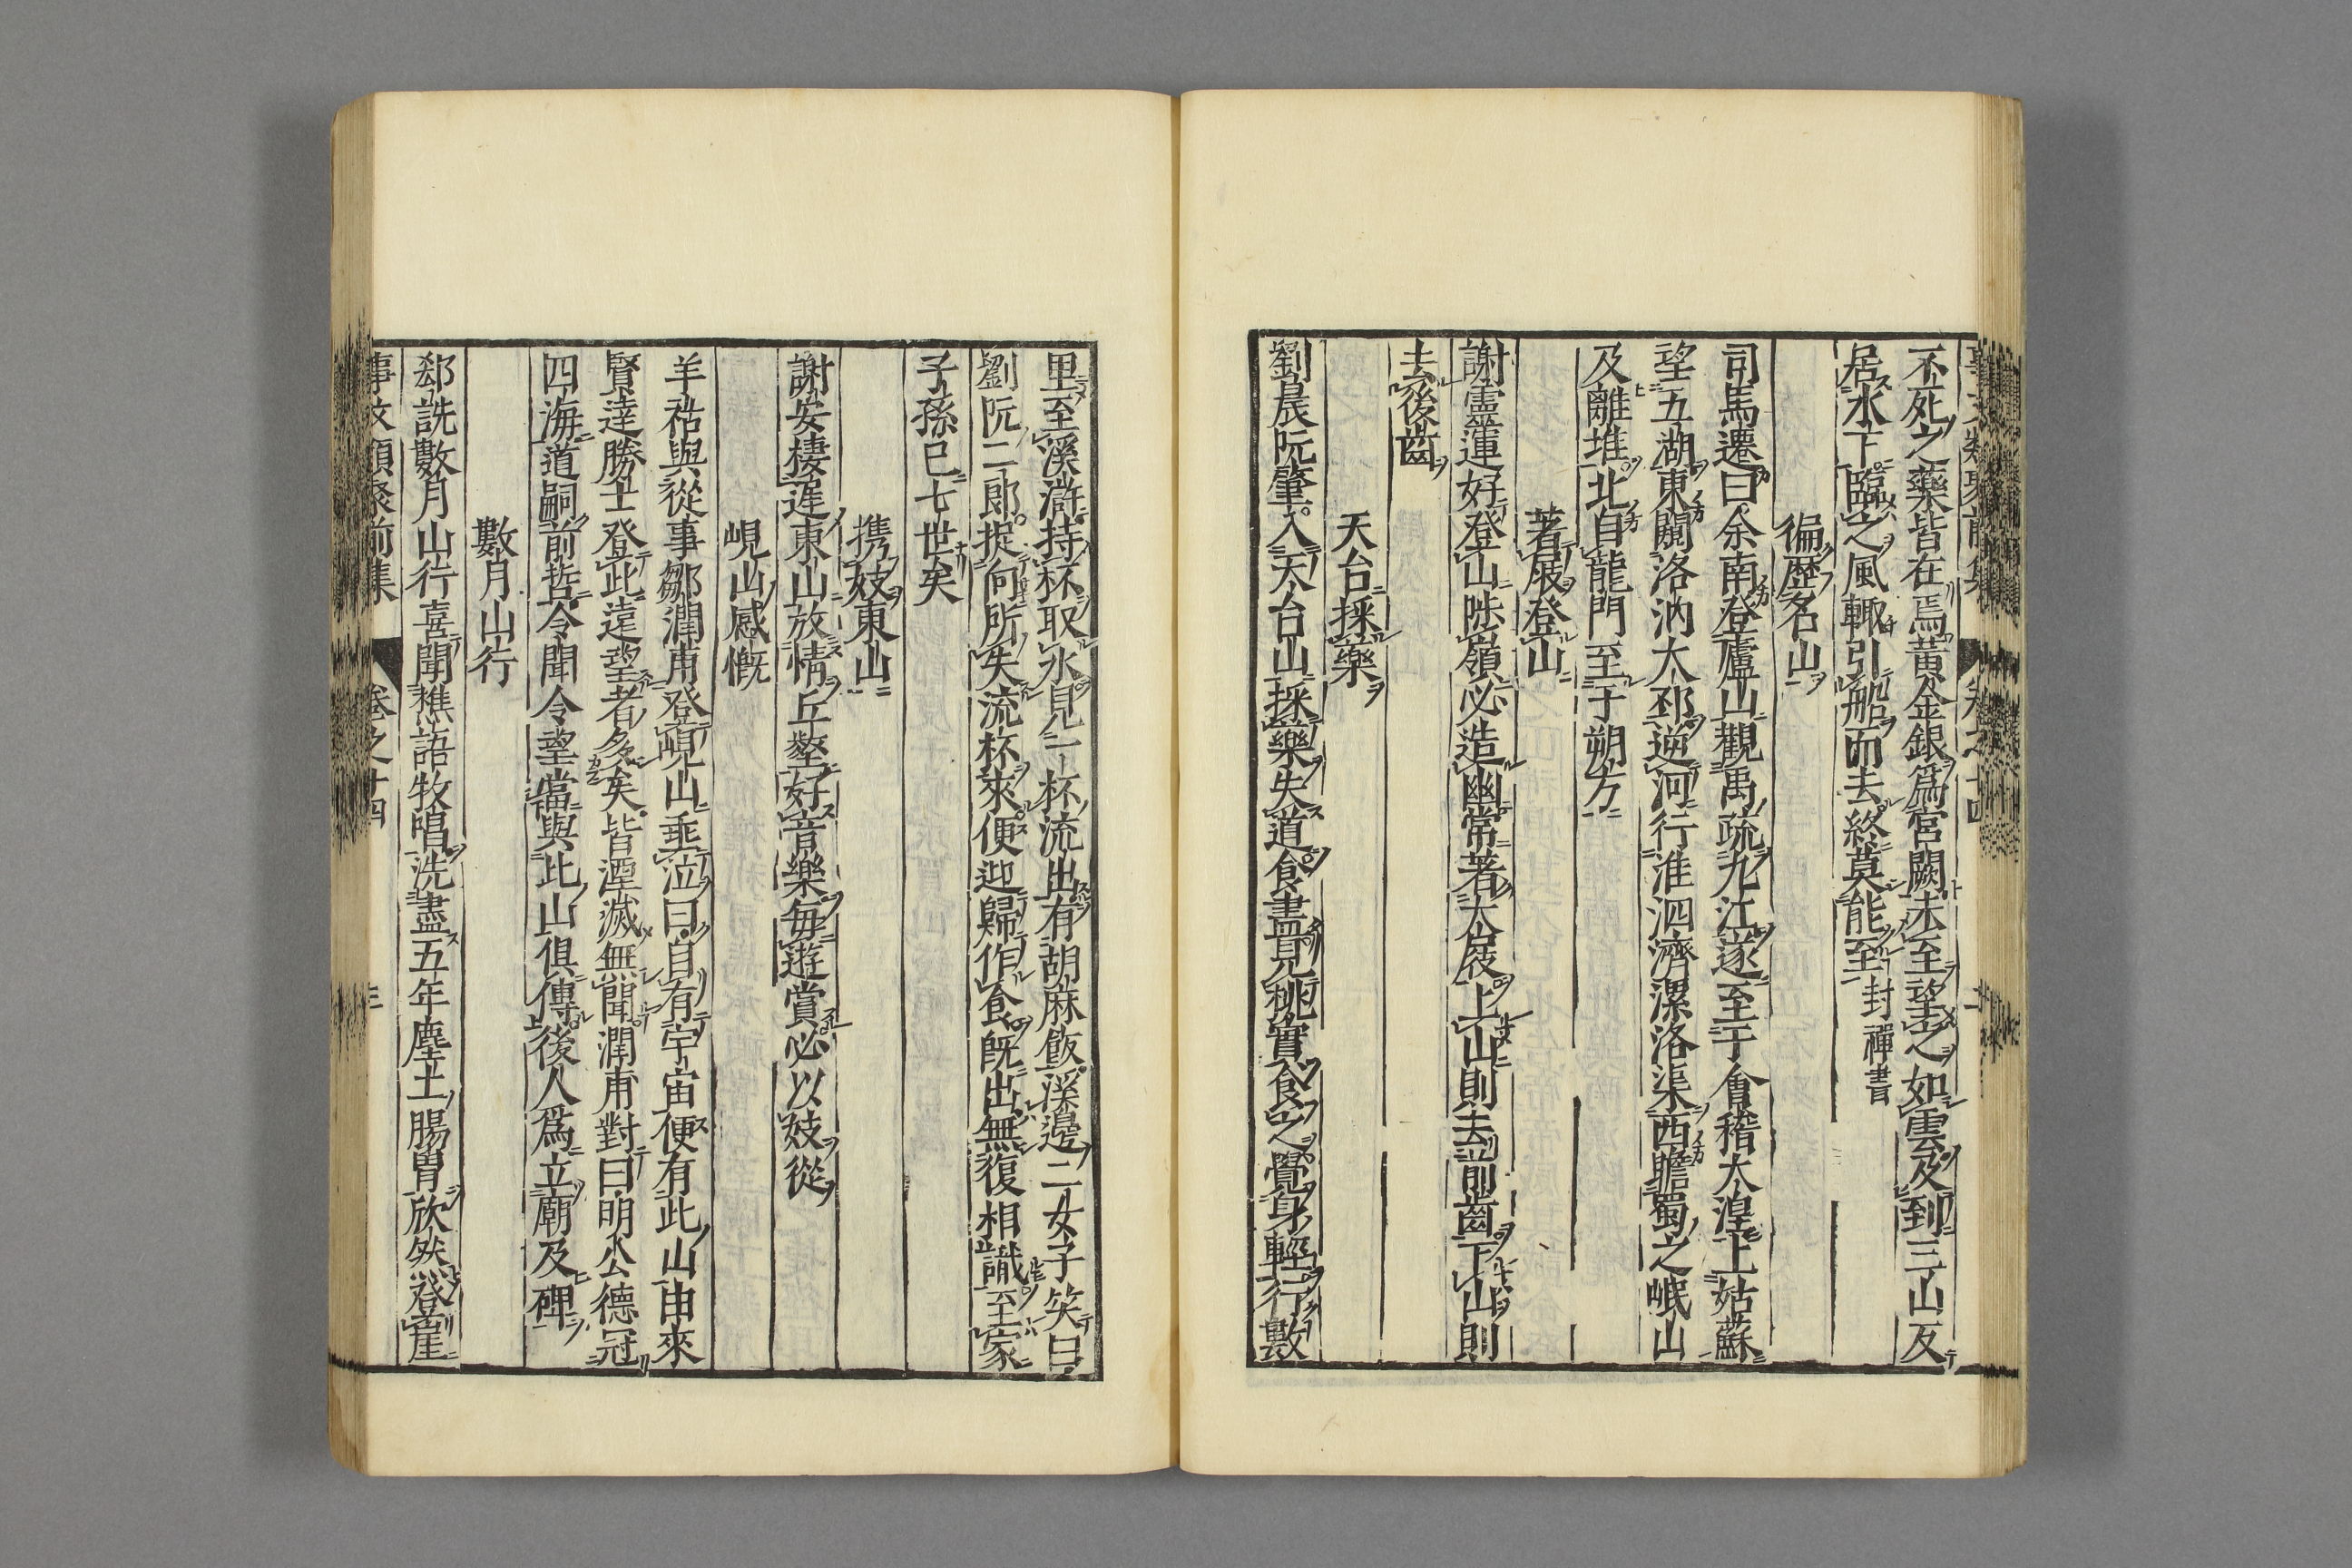 不死之藥皆在焉黃金銀爲宮闕未至望之如雲及到三山反
居水下臨之風輙引船而去終莫能至封禪書
徧歷名山
司馬遷曰余南登廬山觀禹疏九江遂至于會稽太湟上姑蘇
望五湖東闚洛汭大邳逆河行淮泗濟漯洛渠西瞻蜀之岷山
及離堆北自龍門至于朔方
著屐登山
謝靈運好登山陟嶺必造幽常著木屐上山則去前齒下山則
去後齒
天台採藥
劉晨阮肇入天台山採藥失道食盡見桃實食之覺身輕行數
里至溪滸持杯取水見一杯流出有胡麻飯溪邊二女子笑曰
劉阮二郎捉向所失流杯來便迎歸作食旣出無復相識至家
子孫已七世矣
携妓東山
謝安棲遲東山放情丘壑好音樂每遊賞必以妓從
峴山感慨
羊祜與從事鄒潤甫登峴山垂泣曰自有宇宙便有此山由來
賢達勝士登此遠望者多矣皆湮滅無聞潤甫對曰明公德冠
四海道嗣前哲令聞令望當與此山俱傳後人爲立廟及碑
數月山行
郄詵數月山行喜聞樵語牧唱洗盡五年塵土腸胃欣然登崖
事文類聚前集 卷之十四